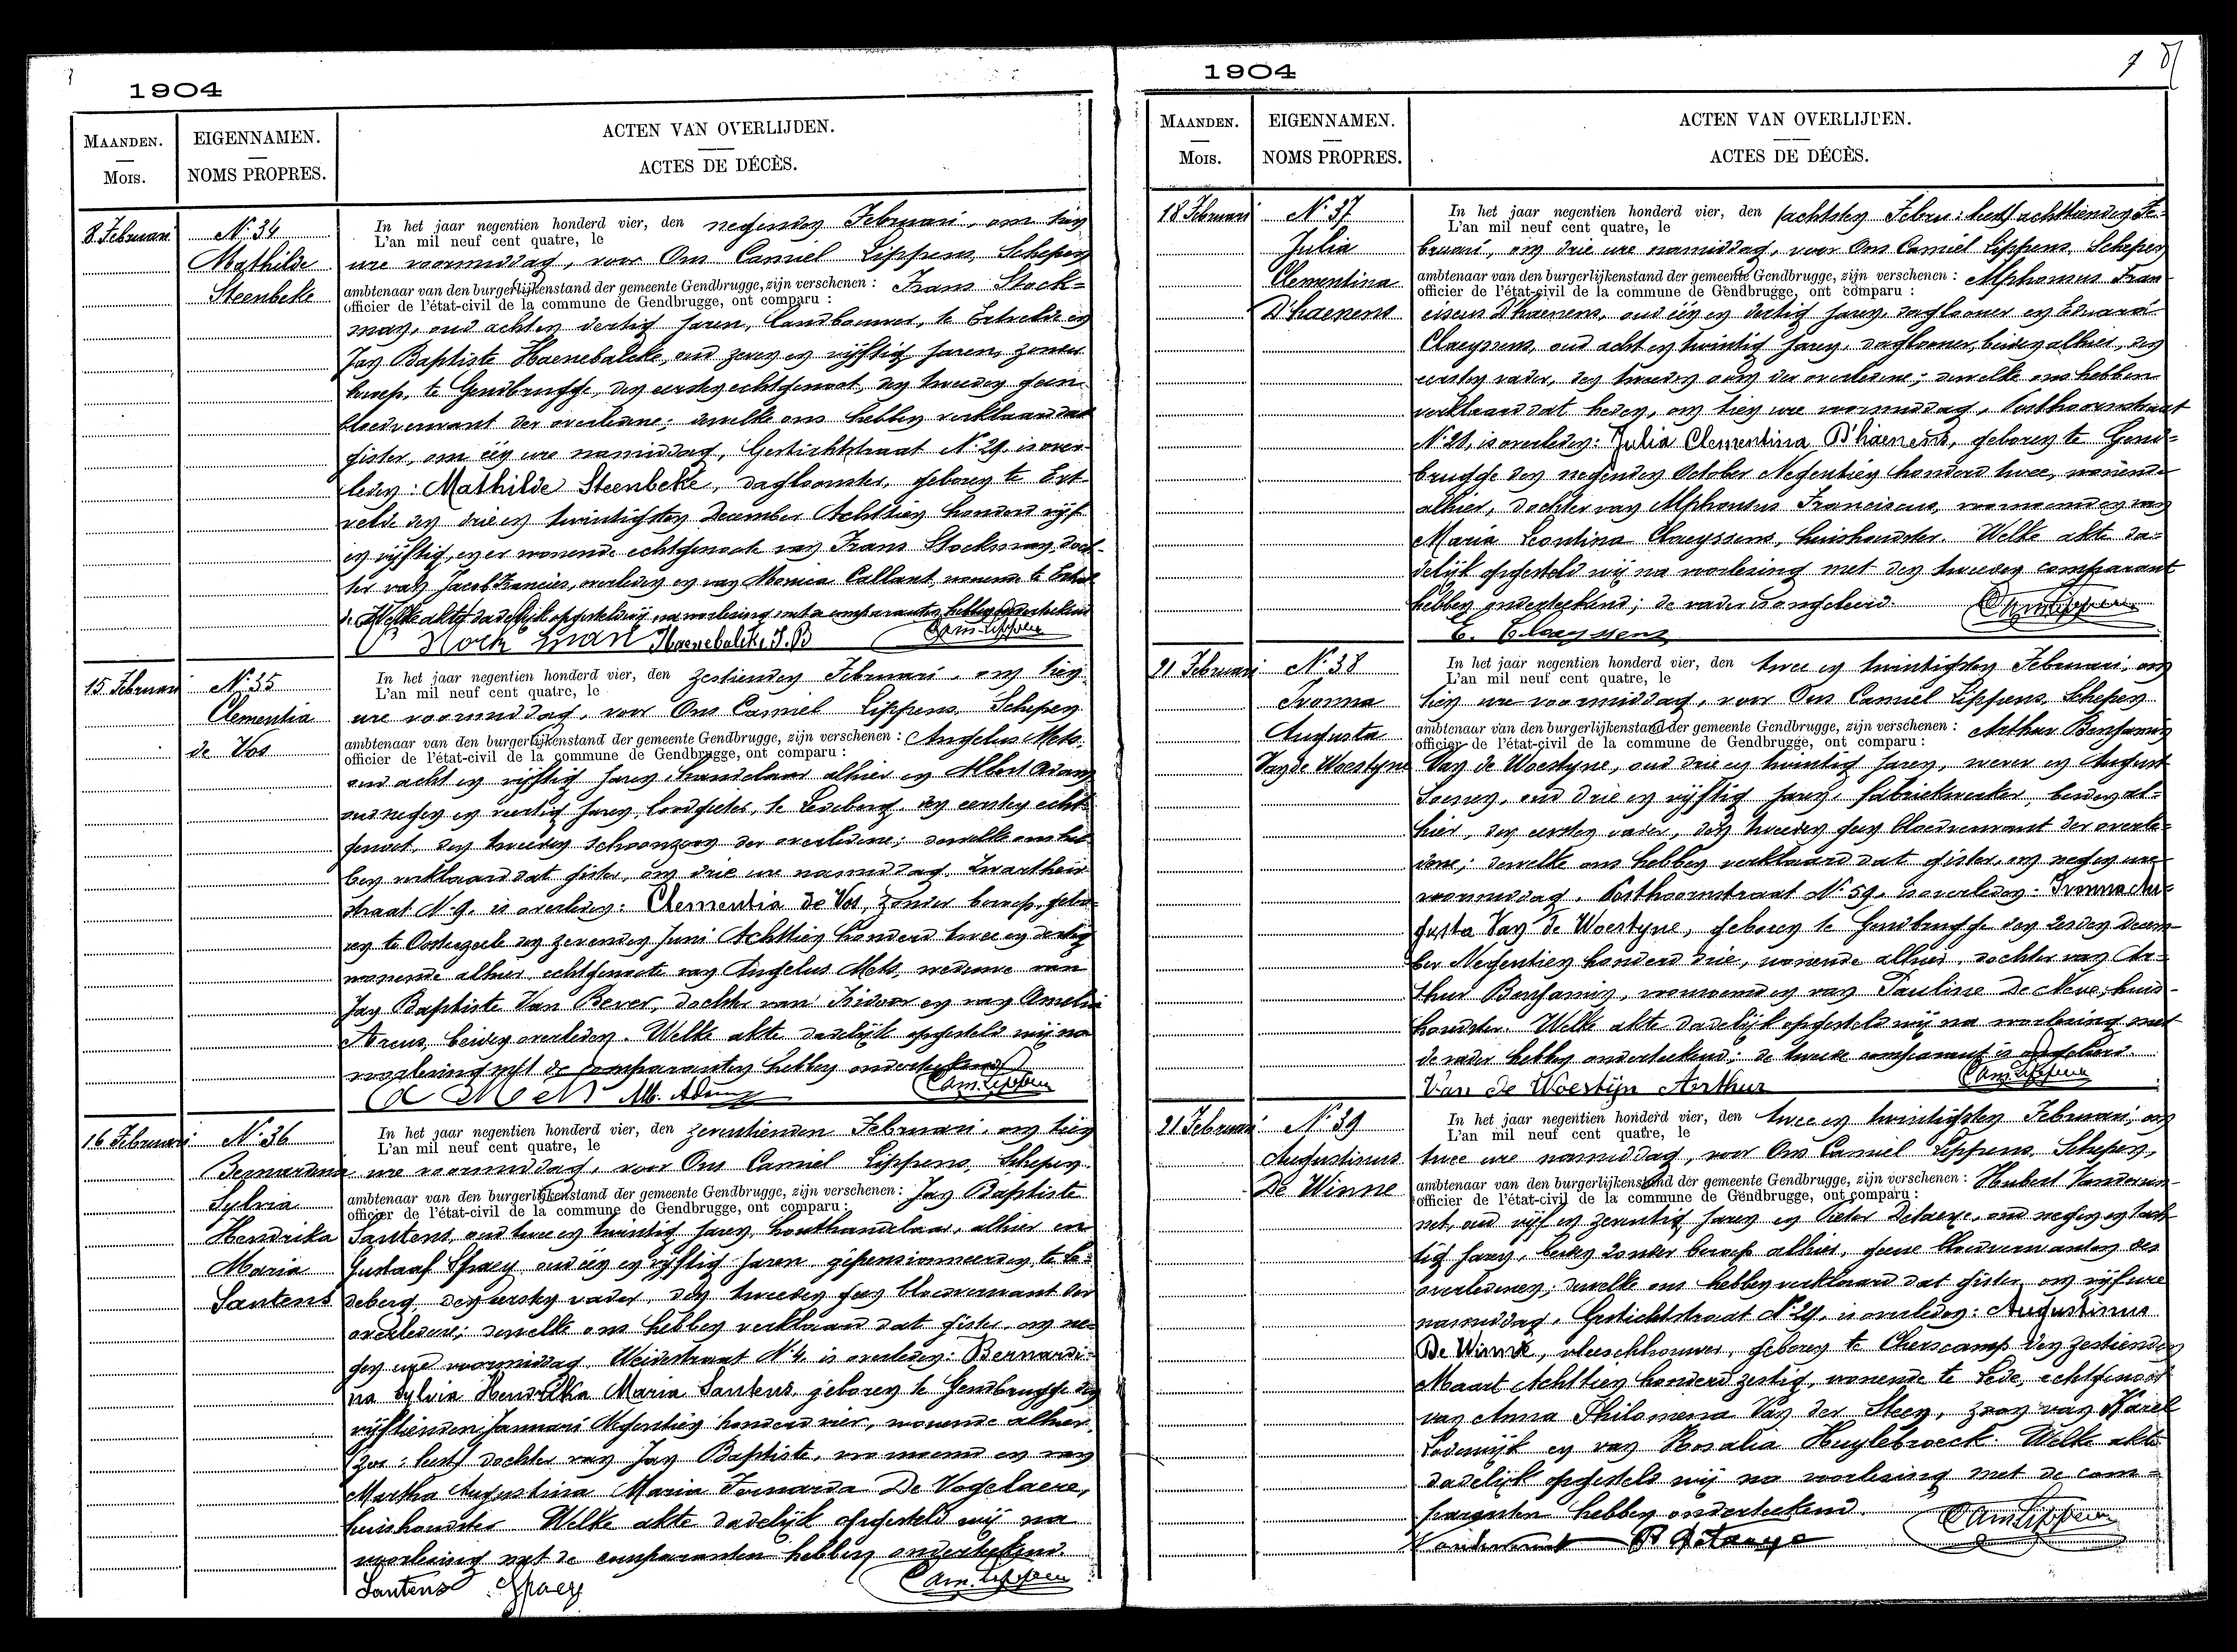 1904
MAANDEN.
MOIS.
EIGENNAMEN.
NOMS PROPRES.
ACTEN VAN OVERLIJDEN.
ACTES DE DÉCÈS.
8 Februari
N.° 34
Mathilde
Steenbeke
In het jaar negentien honderd vier, den negenden Februari, om tien
L'an mil neuf cent quatre, le
ure voormiddag, voor Ons Camiel Lippens, Schepen
ambtenaar van den burgerlijkenstand der gemeente Gendbrugge, zijn verschenen : Frans Stock=
officier de l'état-civil de la commune de Gendbrugge, ont comparu :
man, oud achten dertig jaren, landbouwer, te Ertvelde en
Jan Baptiste Haenebalcke, oud zeven en vijftig jaren, zonder
beroep, te Gendbrugge, den eersten echtgenoot, den tweeden geen
bloedverwant der overledene; dewelke ons hebben verklaard dat
gister, om één ure namiddag, Gestichtstraat N.° 29, is over-
leden : Mathilde Steenbeke, dagloonster, geboren te Ert-
velde den drie en twintigsten December Achttien honderd vijf
en vijftig, en er wonende echtgenoote van Frans Stockman, doch-
ter van Jacob Francies, overleden en van Monica Callant, wonende te Ertvel
de. Welke akte dadelijk opgesteld wij na voorlezing met de comparanten hebben onderteekend
Stockman Haenebalcke J. B Cam. Lippens
15 Februari
N.° 35
Clementia
de Vos
In het jaar negentien honderd vier, den zestienden Februari, om tien
L'an mil neuf cent quatre, le
ure voormiddag, voor Ons Camiel Lippens, Schepen
ambtenaar van den burgerlijkenstand der gemeente Gendbrugge, zijn verschenen : Angelus Mets,
officier de l'état-civil de la commune de Gendbrugge, ont comparu :
oud acht en vijftig jaren, handelaar alhier en Albert Adam
oud negen en veertig jaren, loodgieter, te Ledeberg, den eersten echt=
genoot, den tweeden schoonzoon der overledene; dewelke ons heb
ben verklaard dat gister, om drie ure namiddag,
straat N.° 9. is overleden : Clementia de Vos, zonder beroep, gebo
ren te Oosterzeele den zevenden Juni Achttien honderd twee en dertig
wonende alhier echtgenoote van Angelus Mets, weduwe van
Jan Baptiste Van Bever, dochter van Isidoor en van Amelia
beiden overleden. Welke akte dadelijk opgesteld wij na
voorlezing met de comparanten hebben onderteekend
A Mets Alb. Adam Cam. Lippens
16 Februari
N.° 36
Bernardina
Sylvia
Hendrika
Maria
Santens
In het jaar negentien honderd vier, den zeventienden Februari, om tien
L'an mil neuf cent quatre, le
ure voormiddag, voor Ons Camiel Lippens, Schepen
ambtenaar van den burgerlijkenstand der gemeente Gendbrugge, zijn verschenen : Jan Baptiste
officier de l'état-civil de la commune de Gendbrugge, ont comparu :
Santens, oud twee en twintig jaren, houthandelaar, alhier en
Gustaaf Spaey oud één en vijftig jaren gepensionneerden, te Le=
deberg, den eersten vader, den tweeden geen bloedverwant der
overledene; dewelke ons hebben verklaard dat gister, om ne=
gen ure voormiddag Weidestraat N.° 4. is overleden : Bernardi=
na Sylvia Hendrika Maria Santens, geboren te Gendbrugge den
vijftienden Januari Negentien honderd vier, wonende alhier,
(zoo : leest) dochter van Jan Baptiste, voornoemd en van
Martha Augustina Maria Fernarda De Vogelaere,
huishoudster. Welke akte dadelijk opgesteld wij na
voorlezing met de comparanten hebben onderteekend.
Santens Spaey Cam. Lippens
1904
7
MAANDEN.
MOIS.
EIGENNAMEN.
NOMS PROPRES.
ACTEN VAN OVERLIJDEN.
ACTES DE DÉCÈS.
18 Februari
N.° 37
Julia
Clementina
D'haenens
In het jaar negentien honderd vier, den (achtsten Febru : leest) achttienden Fe=
L'an mil neuf cent quatre, le
bruari, om drie ure namiddag, voor Ons Camiel Lippens, Schepen
ambtenaar van den burgerlijkenstand der gemeente Gendbrugge, zijn verschenen : Alphonsus Fran-
officier de l'état-civil de la commune de Gendbrugge, ont comparu :
ciscus D'haenens, oud één en dertig jaren, daglooner en Eduard
Claeyssens, oud acht en twintig jaren, daglooner, beiden alhier, den
eersten vader, den tweeden oom der overledene; dewelke ons hebben
verklaard dat heden, om tien ure voormiddag, Posthoornstraat
N.° 21, is overleden : Julia Clementina D'haenens, geboren te Gend=
brugge den negenden October Negentien honderd twee, wonende
alhier, dochter van Alphonsus Franciscus, voornoemd en van
Maria Leontina Claeyssens, huishoudster. Welke akte da=
delijk opgesteld wij na voorlezing met den tweeden comparant
hebben onderteekend; de vader is ongeleerd. Cam Lippens
E. Claeyssens
21 Februari
N.° 38
Ivonna
Augusta
Van de Woestyne
In het jaar negentien honderd vier, den twee en twintigsten Februari, om
L'an mil neuf cent quatre, le
tien ure voormiddag, voor Ons Camiel Lippens, Schepen
ambtenaar van den burgerlijkenstand der gemeente Gendbrugge, zijn verschenen : Arthur Benjamin
officier de l'état-civil de la commune de Gendbrugge, ont comparu :
Van de Woestyne, oud drie en twintig jaren, wever en August
oud drie en vijftig jaren, fabriekwerker, beiden al=
hier, den eersten vader, den tweeden geen bloedverwant der overle=
dene; dewelke ons hebben verklaard dat gister, om negen ure
voormiddag, Posthoornstraat N.° 59. is overleden : Ivonna Au=
gusta Van de Woestyne, geboren te Gendbrugge den 2den Decem-
ber Negentien honderd drie, wonende alhier, dochter van Ar=
thur Benjamin, voornoemd en van Pauline De Neve, huis-
houdster. Welke akte dadelijk opgesteld wij na voorlezing met
de vader hebben onderteekend; de tweede comparant is ongeleerd.
Van de Woestijn Arthur Cam. Lippens
21 Februari
N.° 39
Augustinus
De Winne
In het jaar negentien honderd vier, den twee en twintigsten Februari, om
L'an mil neuf cent quatre, le
twee ure namiddag, voor Ons Camiel Lippens, Schepen,
ambtenaar van den burgerlijkenstand der gemeente Gendbrugge, zijn verschenen : Hubert
officier de l'état-civil de la commune de Gendbrugge, ont comparu :
oud vijf en zeventig jaren en Pieter Detaeye, oud negen en tach
tig jaren, beiden zonder beroep alhier, geene bloedverwanten des
overledenen; dewelke ons hebben verklaard dat gister, om vijf ure
namiddag, Gestichtstraat N.° 29, is overleden : Augustinus
De Winne, vleeschhouwer, geboren te Cherscamp den zestienden
Maart Achttien honderd zestig, wonende te Lede, echtgenoot
van Anna Philomena Van der Steen, zoon van Karel
Lodewijk en van Rosalia Huylebroeck. Welke akte
dadelijk opgesteld wij na voorlezing met de com=
paranten hebben onderteekend. Cam Lippens
P Detaeye